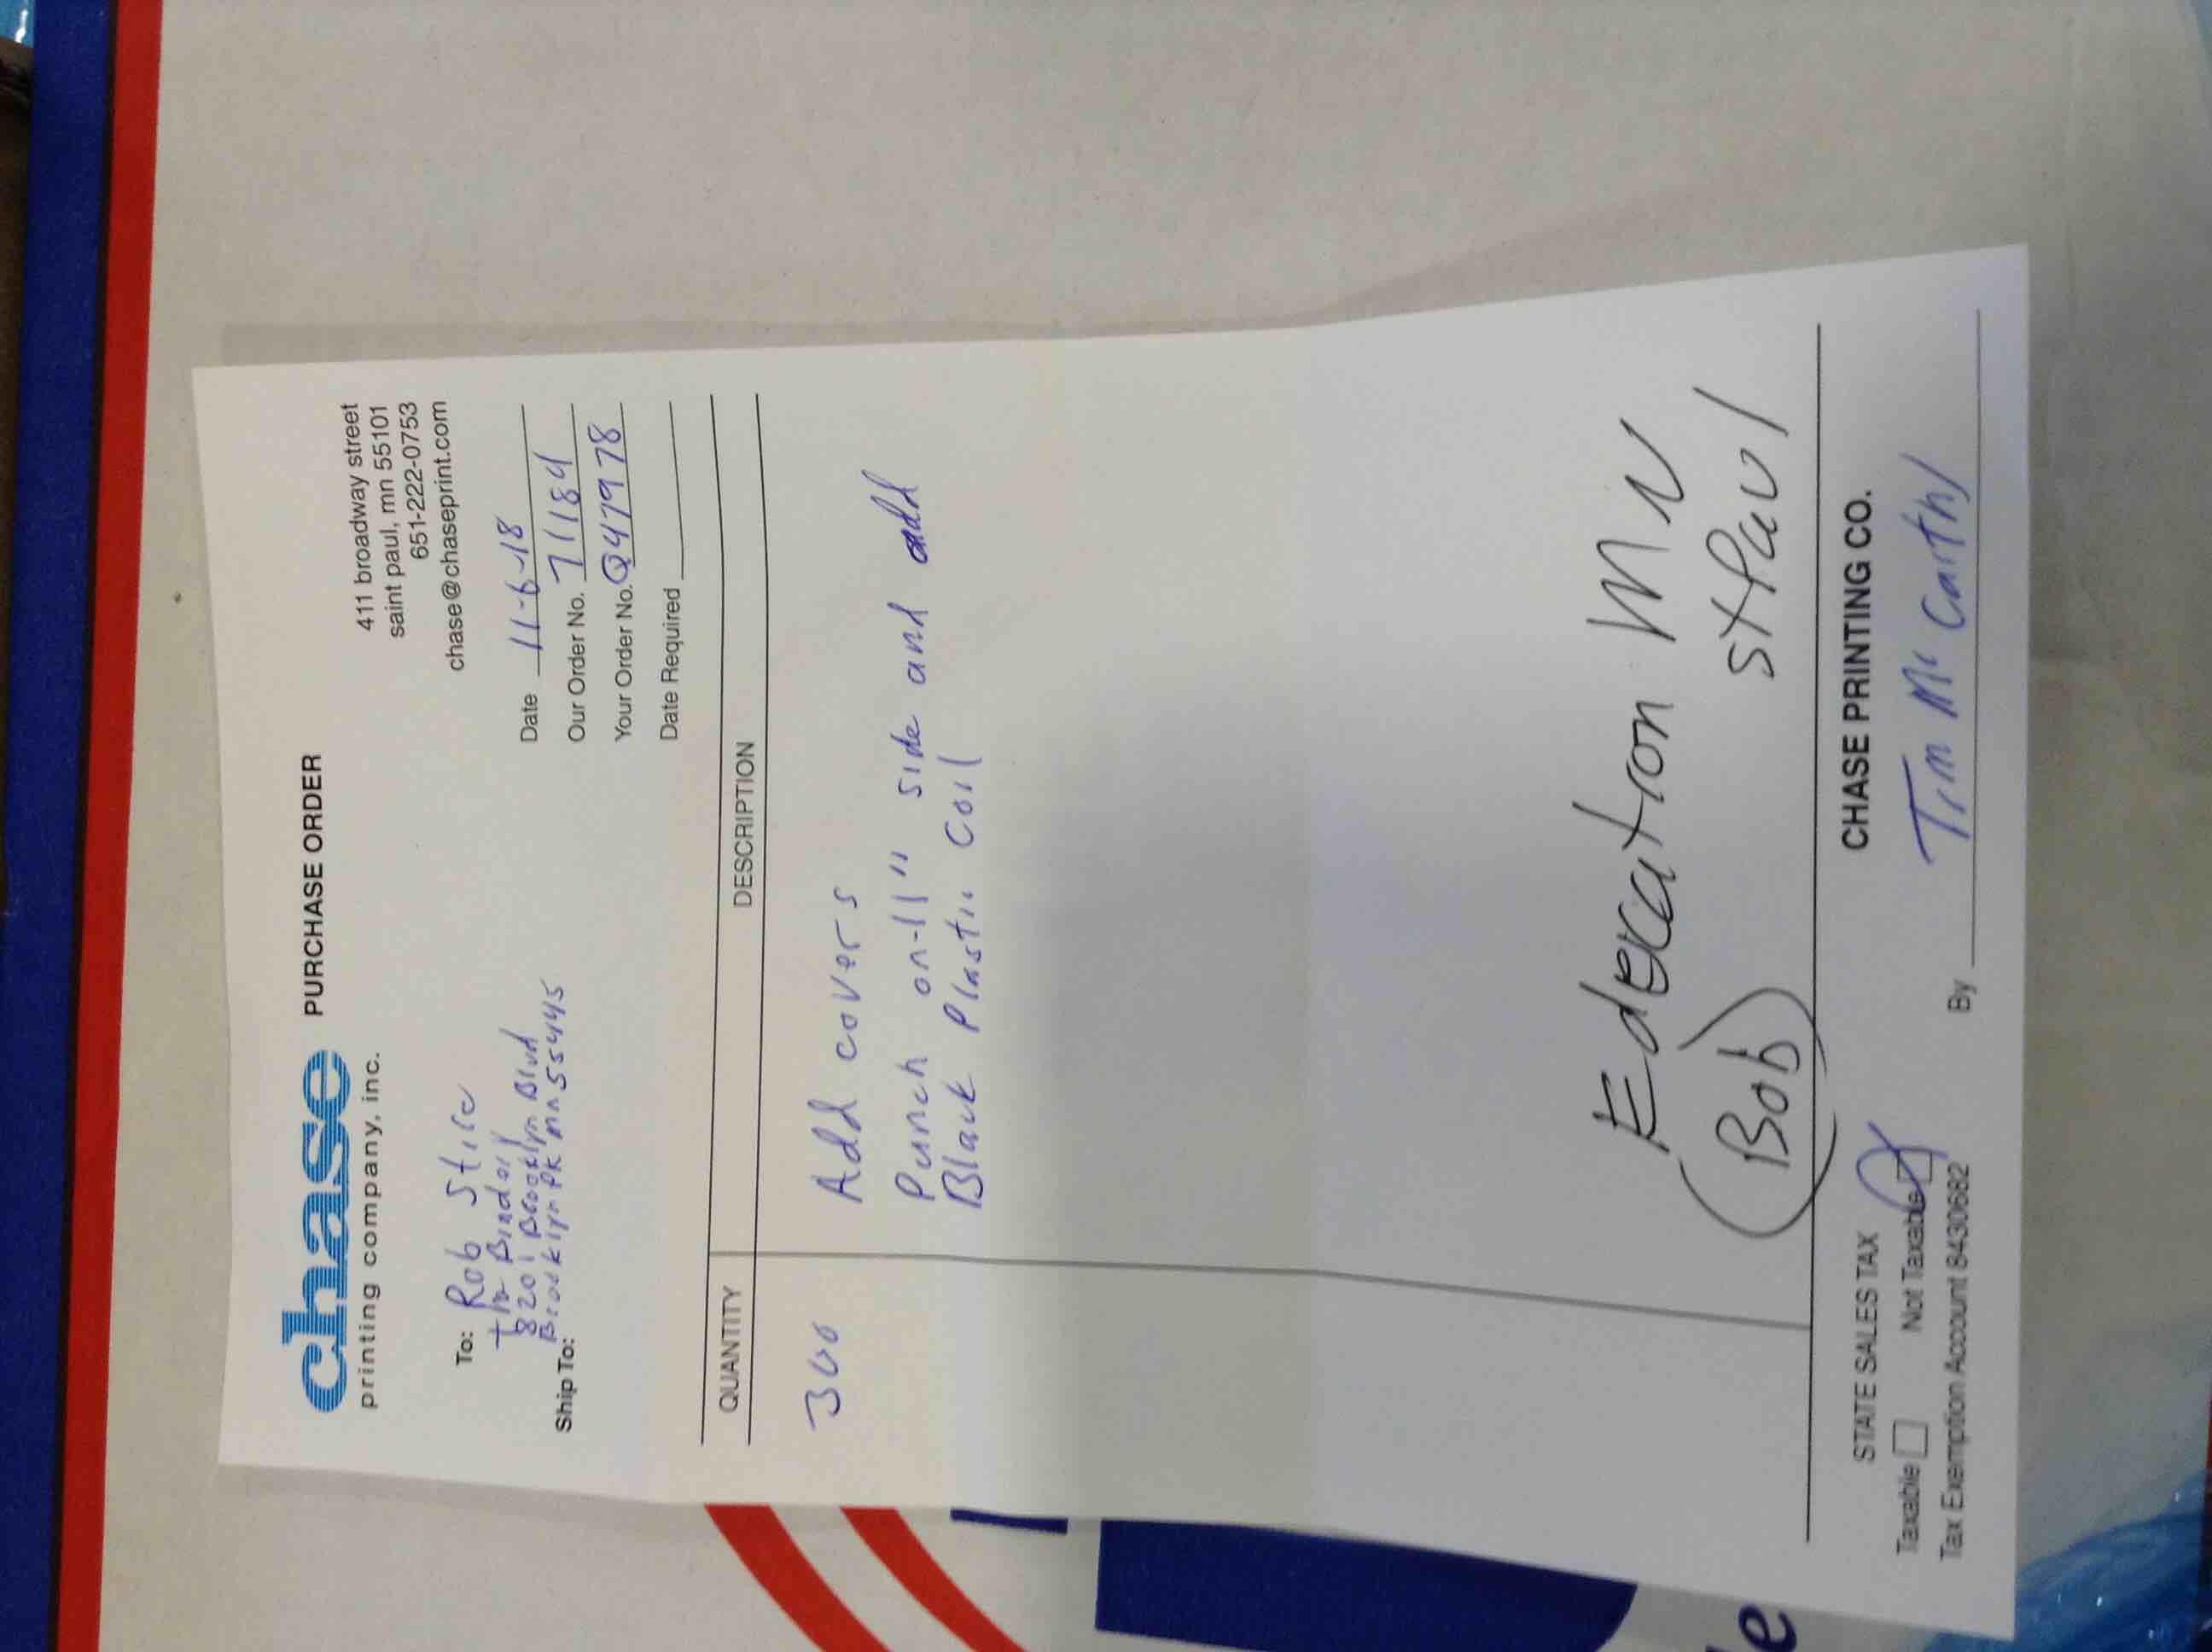 chase PURCHASE ORDER
printing company, inc.
411 broadway street
saint paul, mn 55101
651-222-0753
chase@chaseprint.com
To: Rob Stice
the Bindery
8201 Brooklyn Blvd
Brooklyn Pk mn 55445
Ship To:
Date 11-6-18
Our Order No. 71184
Your Order No. Q479978
Date Required
QUANTITY DESCRIPTION
300 Add covers
Punch on-11" side and add
Black Plastic Coil
Education MN
(Bob) St Paul
STATE SALES TAX
Taxable Not Taxable
Tax Exemption Account 8430682
CHASE PRINTING CO.
By Tim McCarthy
e